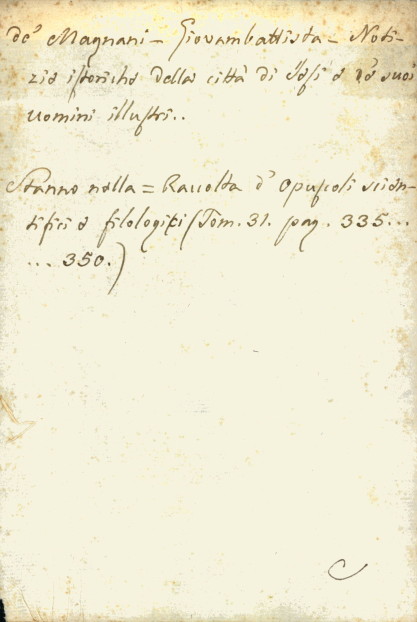 de' Magnani - Giovambattista - Noti-
zie istoriche della città di Jesi e de' suoi
uomini illustri..
Stanno nella = Raccolta d' Opuscoli scien-
tifici e filologici (Tom. 31. pag. 335...
... 350.)
C